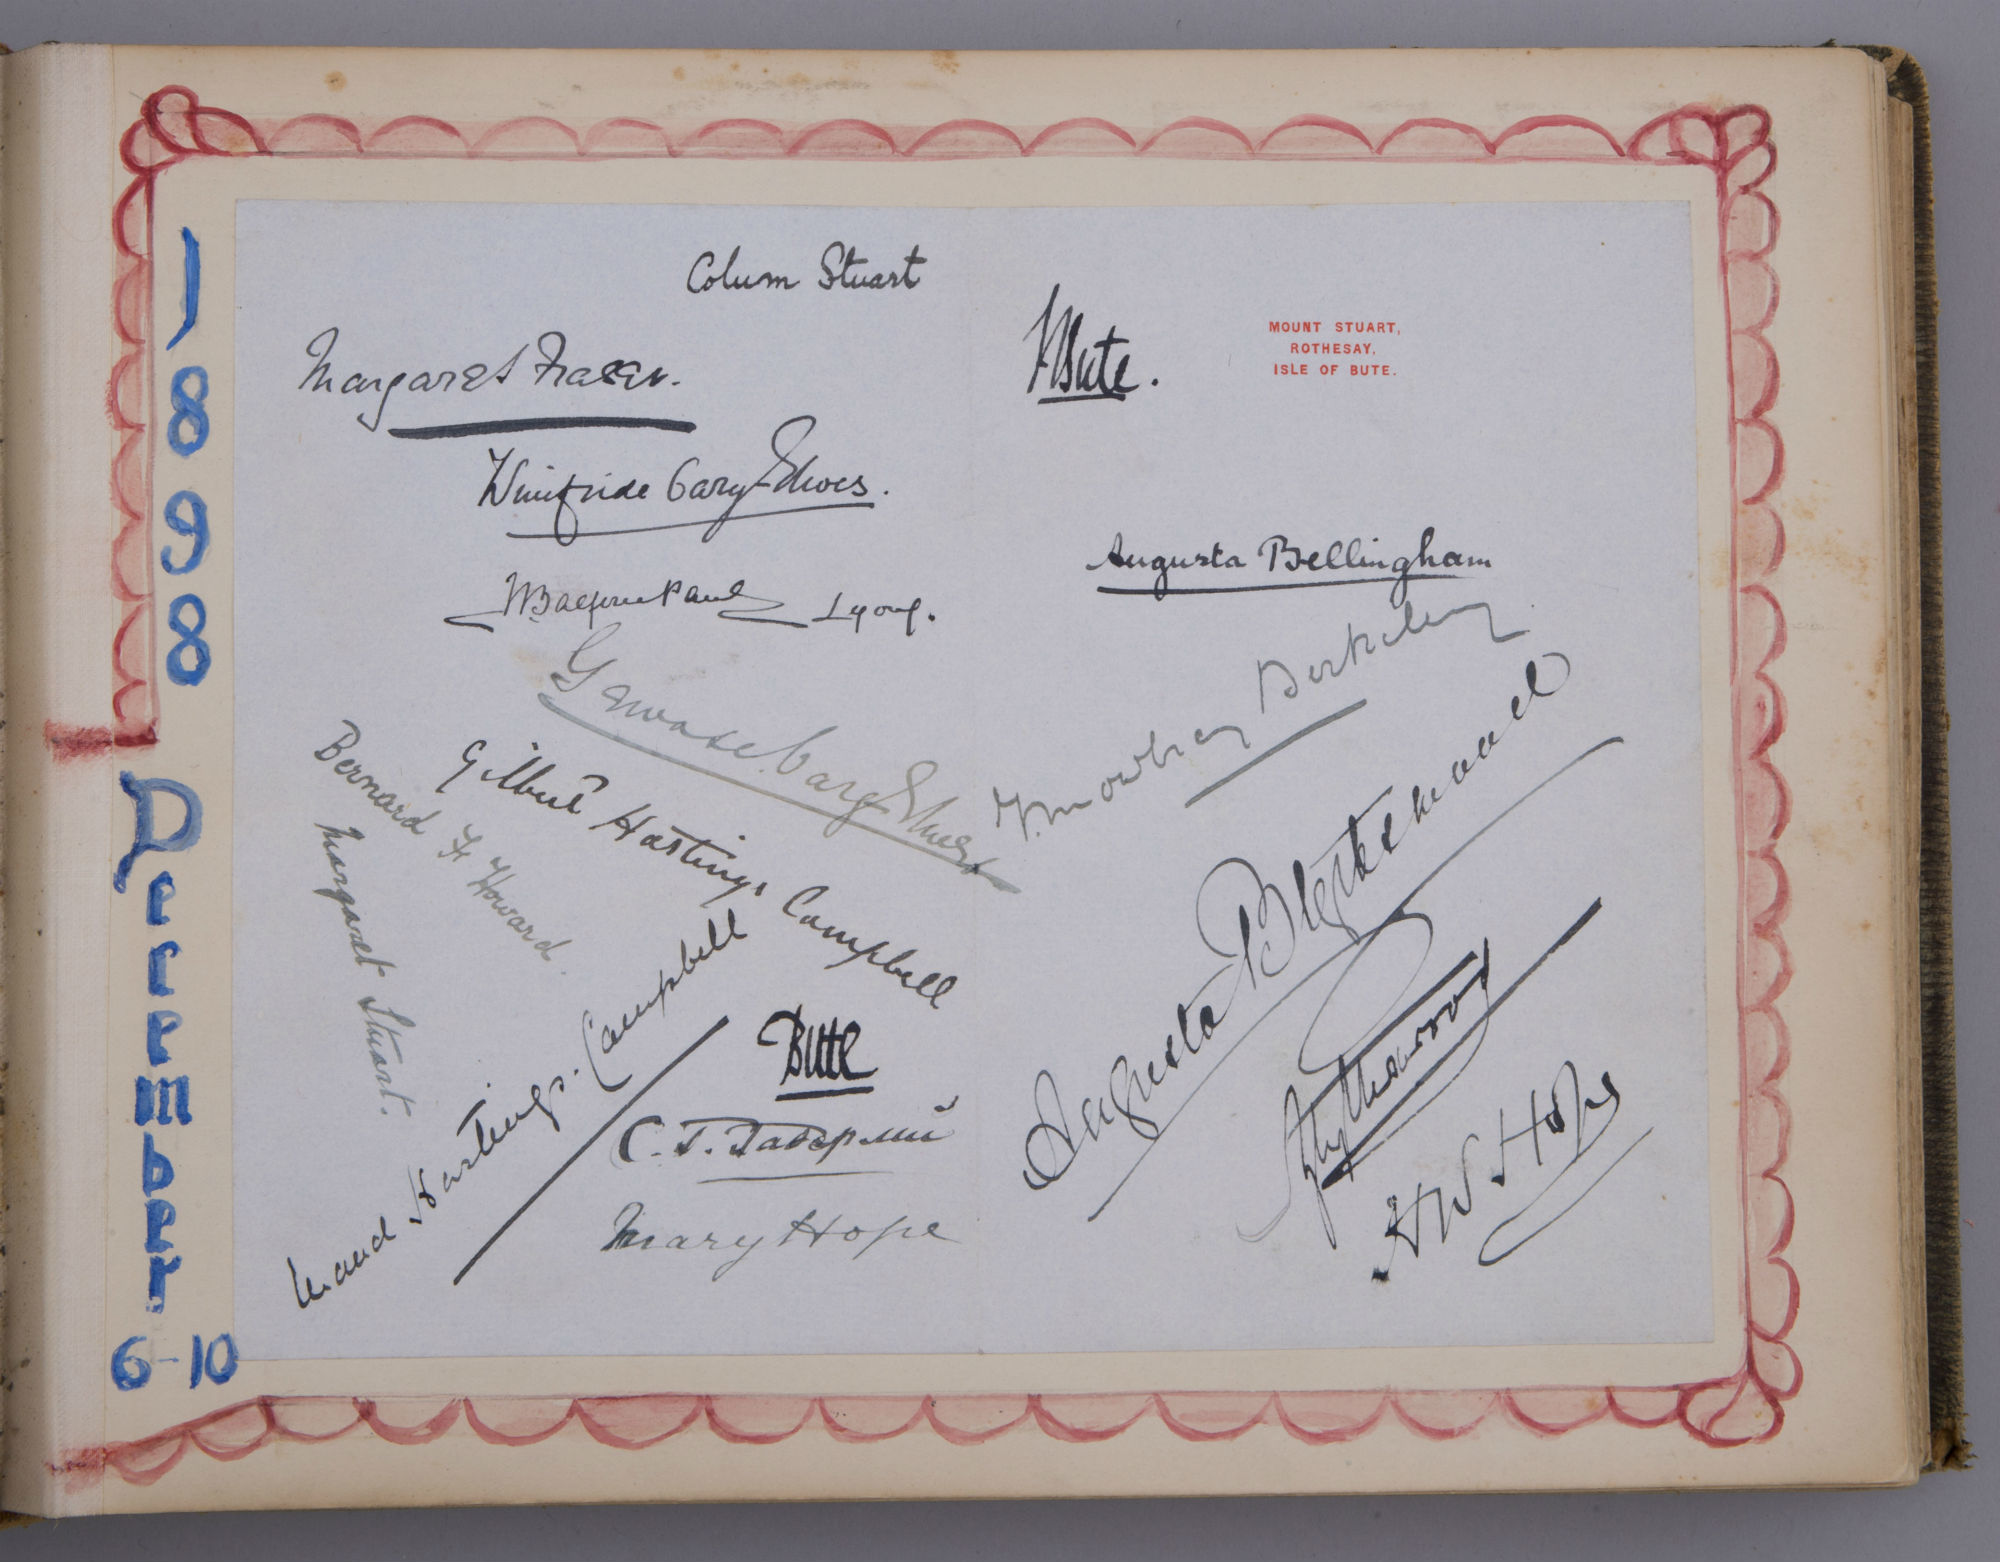 1898
December
6-10
Colum Stuart
Margaret Fraser.
Winifride Cary-Elwes.
Lyons.
Gervase Cary Elwes
Bernard F Howard.
Gilbert Hastings Campbell
Margaret Stuart.
Maud Hastings. Campbell
Bute
Mary Hope
Bute.
MOUNT STUART,
ROTHESAY,
ISLE OF BUTE.
Augusta Bellingham
Mowbray Berkeley
Augusta
H W Hope